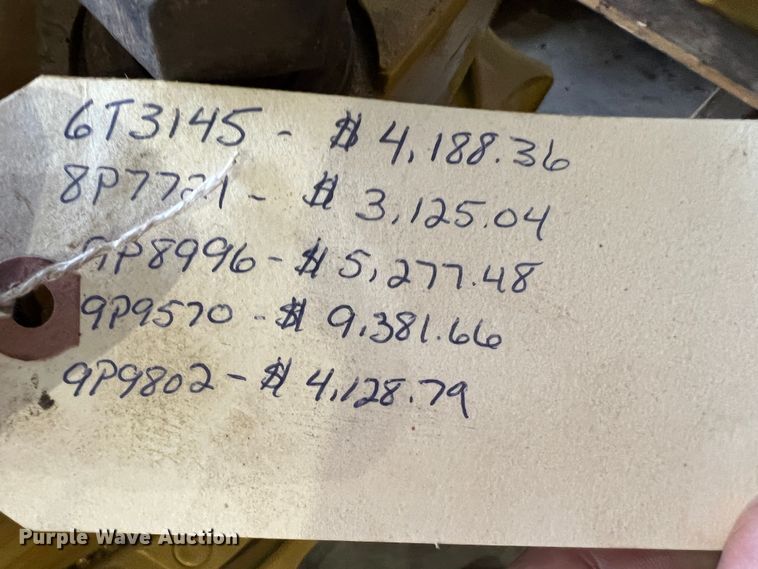 6T3145 - $ 4,188.36
- $ 3,125.04
9P8996 - $ 5,277.48
9P9570 - $ 9,381.66
9P9802 - $ 4,128.79
Purple Wave Auction